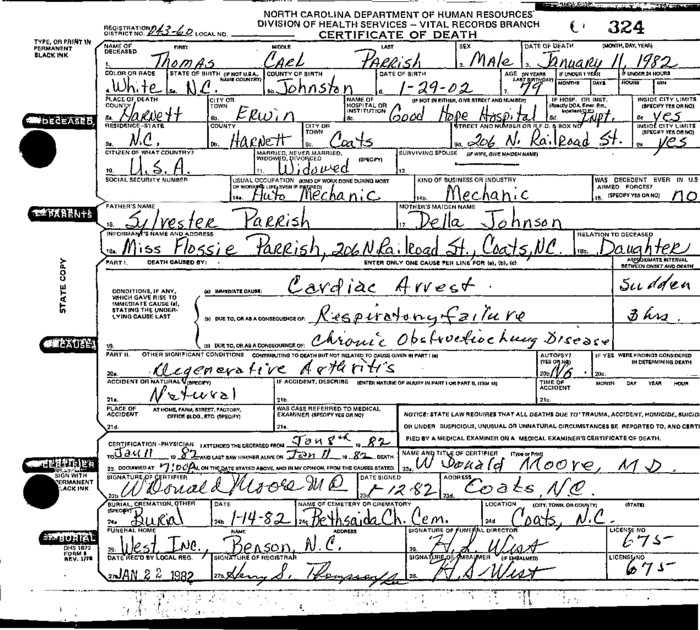 NORTH CAROLINA DEPARTMENT OF HUMAN RESOURCES
DIVISION OF HEALTH SERVICES – VITAL RECORDS BRANCH
CERTIFICATE OF DEATH
324
REGISTRATION DISTRICT NO. 043-60 LOCAL NO.
TYPE, OR PRINT IN PERMANENT BLACK INK
NAME OF DECEASED FIRST MIDDLE LAST SEX DATE OF DEATH (MONTH, DAY, YEAR)
1. Thomas Carl Parrish 2. Male 3. January 11, 1982
COLOR OR RACE STATE OF BIRTH (IF NOT U.S.A. NAME COUNTRY) COUNTY OF BIRTH DATE OF BIRTH AGE (IN YEARS LAST BIRTHDAY) IF UNDER 1 YEAR IF UNDER 24 HOURS
MONTHS DAYS HOURS
White N.C. Johnston 1-29-02 79
PLACE OF DEATH COUNTY CITY OR TOWN NAME OF HOSPITAL OR INSTITUTION (IF NOT IN EITHER, GIVE STREET AND NUMBER) IF HOSP. OR INST. INSIDE CITY LIMITS (SPECIFY YES OR NO)
Harnett Erwin Good Hope Hospital Inpt. yes
DECEASED
RESIDENCE-STATE COUNTY CITY OR TOWN STREET AND NUMBER OR R.F.D. & BOX NO INSIDE CITY LIMITS (SPECIFY YES OR NO)
N.C. Harnett Coats 206 N. Railroad St. yes
CITIZEN OF WHAT COUNTRY? MARRIED, NEVER MARRIED, WIDOWED, DIVORCED (SPECIFY) SURVIVING SPOUSE (IF WIFE, GIVE MAIDEN NAME)
10. U.S.A. 11. Widowed
SOCIAL SECURITY NUMBER USUAL OCCUPATION (KIND OF WORK DONE DURING MOST OF WORKING LIFE, EVEN IF RETIRED) KIND OF BUSINESS OR INDUSTRY WAS DECEDENT EVER IN U.S ARMED FORCES? (SPECIFY YES OR NO)
Auto Mechanic Mechanic no
FATHER'S NAME MOTHER'S MAIDEN NAME
PARENTS
Sylvester Parrish 17. Della Johnson
INFORMANT'S NAME AND ADDRESS RELATION TO DECEASED
Miss Flossie Parrish, 206 N Railroad St., Coats, NC. Daughter
STATE COPY
PART I. DEATH CAUSED BY: ENTER ONLY ONE CAUSE PER LINE FOR (a), (b), (c) APPROXIMATE INTERVAL BETWEEN ONSET AND DEATH
CONDITIONS, IF ANY, WHICH GAVE RISE TO IMMEDIATE CAUSE (a), STATING THE UNDER-LYING CAUSE LAST
(a) IMMEDIATE CAUSE: Cardiac Arrest Sudden
(b) DUE TO, OR AS A CONSEQUENCE OF: Respiratory failure 3 hrs
CAUSE
19. DUE TO, OR AS A CONSEQUENCE OF: Chronic Obstructive Lung Disease
PART II. OTHER SIGNIFICANT CONDITIONS CONTRIBUTING TO DEATH BUT NOT RELATED TO CAUSE GIVEN IN PART I (a) AUTOPSY? (YES OR NO) IF YES WERE FINDINGS CONSIDERED IN DETERMINING DEATH
20a. Degenerative Arthritis 20b. No 20c.
ACCIDENT OR NATURAL (SPECIFY) IF ACCIDENT, DESCRIBE (ENTER NATURE OF INJURY IN PART I OR PART II, ITEM 18) TIME OF ACCIDENT MONTH DAY YEAR HOUR
21a. Natural 21b. 21c.
PLACE OF ACCIDENT AT HOME, FARM, STREET, FACTORY, OFFICE BLDG., ETC. (SPECIFY) WAS CASE REFERRED TO MEDICAL EXAMINER (SPECIFY YES OR NO)
NOTICE: STATE LAW REQUIRES THAT ALL DEATHS DUE TO TRAUMA, ACCIDENT, HOMICIDE, SUICID
OR UNDER SUSPICIOUS, UNUSUAL OR UNNATURAL CIRCUMSTANCES BE REPORTED TO, AND CERTI
FIED BY A MEDICAL EXAMINER ON A MEDICAL EXAMINER'S CERTIFICATE OF DEATH.
21d. 21e.
CERTIFICATION - PHYSICIAN I ATTENDED THE DECEASED FROM Jan 8th, 82
TO Jan 11, 82 AND LAST SAW HIM/HER ALIVE ON Jan 11, 82 DEATH
22. OCCURRED AT 7:00 P M, ON THE DATE STATED ABOVE, AND IN MY OPINION, FROM THE CAUSES STATED.
NAME AND TITLE OF CERTIFIER (Type or Print)
W Donald Moore, M D.
CERTIFIER
SIGN WITH PERMANENT BLACK INK
SIGNATURE OF CERTIFIER DATE SIGNED ADDRESS
23b. W Donald Moore MD 1-12-82 23d. Coats, N.C.
BURIAL, CREMATION, OTHER (SPECIFY) DATE NAME OF CEMETERY OR CREMATORY LOCATION (CITY, TOWN, OR COUNTY) (STATE)
24a. Burial 1-14-82 24c. Bethsaida Ch. Cem. 24d. Coats, N.C.
BURIAL
FUNERAL HOME NAME ADDRESS SIGNATURE OF FUNERAL DIRECTOR LICENSE NO
25. West Inc., Benson, N.C. H S West 675
DHS 1872
FORM 8
REV. 1/78
DATE REC'D BY LOCAL REG. SIGNATURE OF REGISTRAR SIGNATURE OF EMBALMER (IF EMBALMED) LICENSE NO
27a. JAN 22 1982 27b. Henry S. Thompson 28. H S West 675